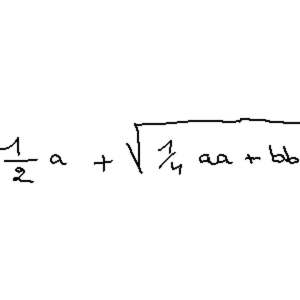 ½ a + √(¼ aa + bb)